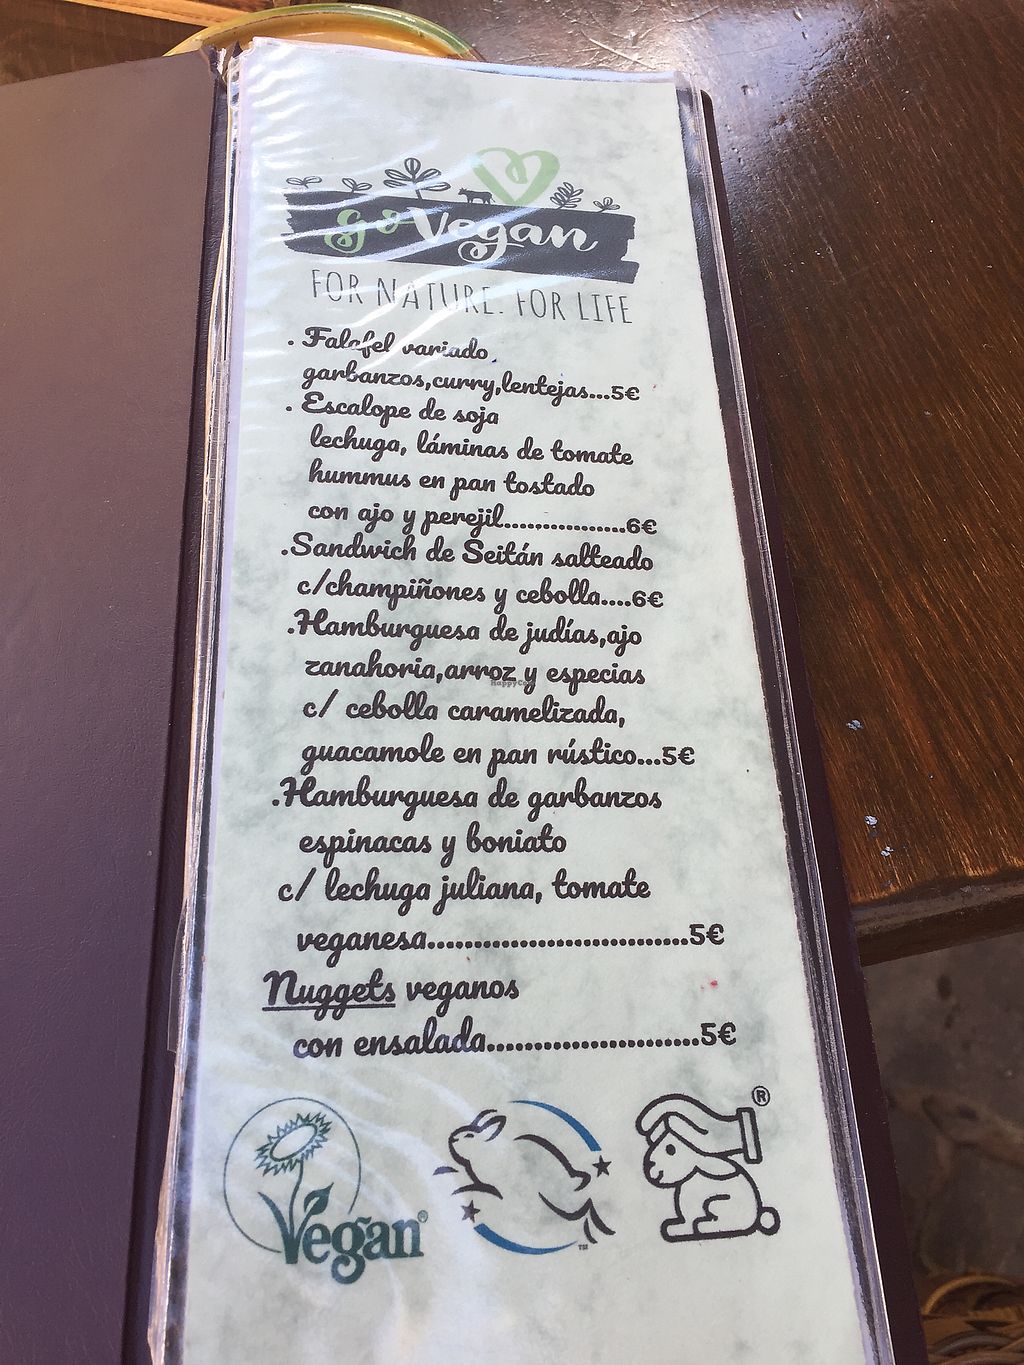 go Vegan
FOR NATURE. FOR LIFE
. Falafel variado
garbanzos,curry,lentejas...5€
. Escalope de soja
lechuga, láminas de tomate
hummus en pan tostado
con ajo y perejil.................6€
.Sandwich de Seitán salteado
c/champiñones y cebolla....6€
.Hamburguesa de judías,ajo
zanahoria,arroz y especias
HappyCow
c/ cebolla caramelizada,
guacamole en pan rústico...5€
.Hamburguesa de garbanzos
espinacas y boniato
c/ lechuga juliana, tomate
veganesa............................5€
Nuggets veganos
con ensalada.......................5€
Vegan®
™
®